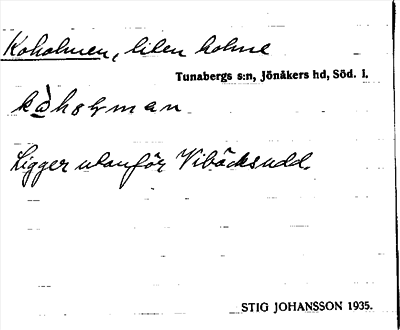 Koholmen, liten holme
Tunabergs s:n, Jönåkers hd, Söd. l.
Ligger utanför Vibäcksudd.
STIG JOHANSSON 1935.